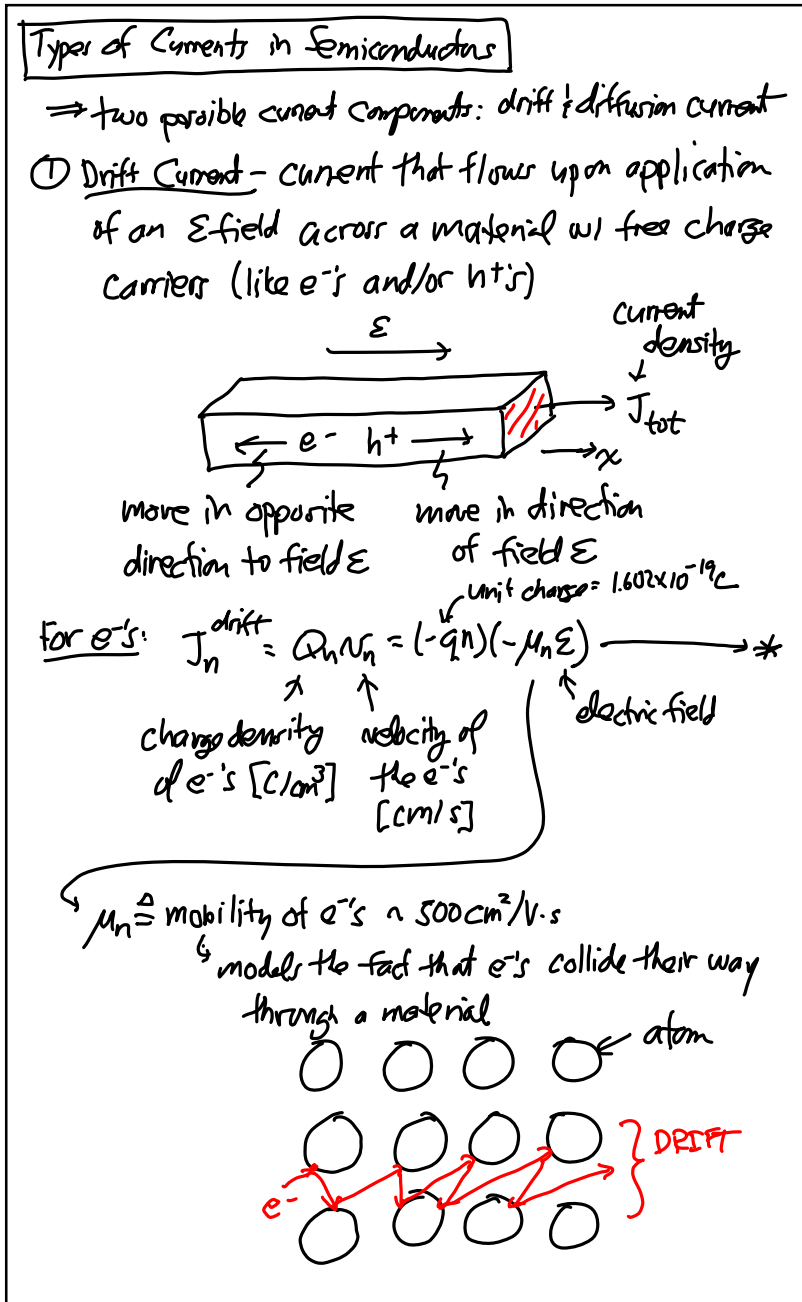 Types of Currents in Semiconductors
⇒ two possible current components: drift & diffusion current
① Drift Current – current that flows upon application
of an ε field across a material w/ free charge
carriers (like e⁻'s and/or h⁺'s)
current
density
ε
J_tot
e⁻ h⁺
x
move in opposite
direction to field ε
move in direction
of field ε
unit charge = 1.602×10⁻¹⁹C
For e⁻'s: J_n^drift = Q_n v_n = (-qn)(-μ_n ε) → *
electric field
charge density
of e⁻'s [C/cm³]
velocity of
the e⁻'s
[cm/s]
μ_n ≜ mobility of e⁻'s ~ 500 cm²/V·s
models the fact that e⁻'s collide their way
through a material
atom
DRIFT
e⁻